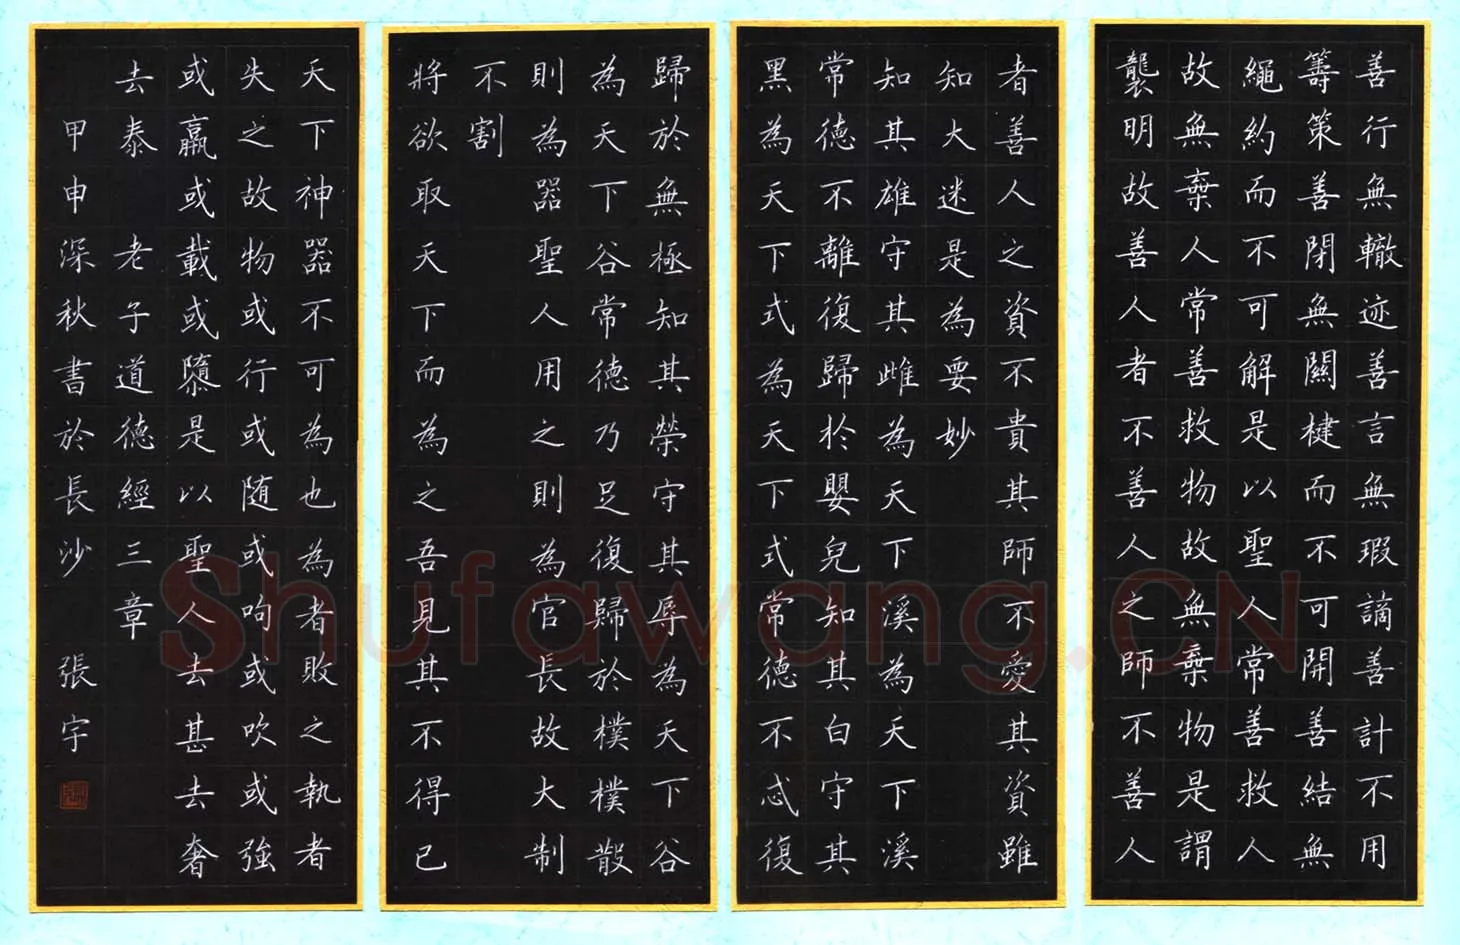 善行無轍迹善言無瑕謫善計不用
籌策善閉無關楗而不可開善結無
繩約而不可解是以聖人常善救人
故無棄人常善救物故無棄物是謂
襲明故善人者不善人之師不善人
者善人之資不貴其師不愛其資雖
知大迷是為要妙
知其雄守其雌為天下溪為天下溪
常德不離復歸於嬰兒知其白守其
黑為天下式為天下式常德不忒復
歸於無極知其榮守其辱為天下谷
為天下谷常德乃足復歸於樸樸散
則為器聖人用之則為官長故大制
不割
將欲取天下而為之吾見其不得已
天下神器不可為也為者敗之執者
失之故物或行或随或呴或吹或強
或羸或載或隳是以聖人去甚去奢
去泰 老子道德經三章
甲申深秋書於長沙 張宇
Shufawang.CN